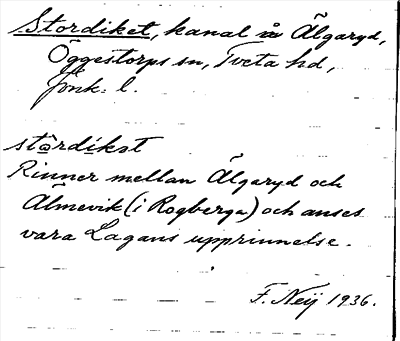 Stordiket, kanal å Älgaryd,
Öggestorps sn, Tveta hd,
Jönk. l.
stȯrdikət
Rinner mellan Älgaryd och
Älmevik (i Rogberga) och anses
vara Lagans upprinnelse.
F. Neij 1936.